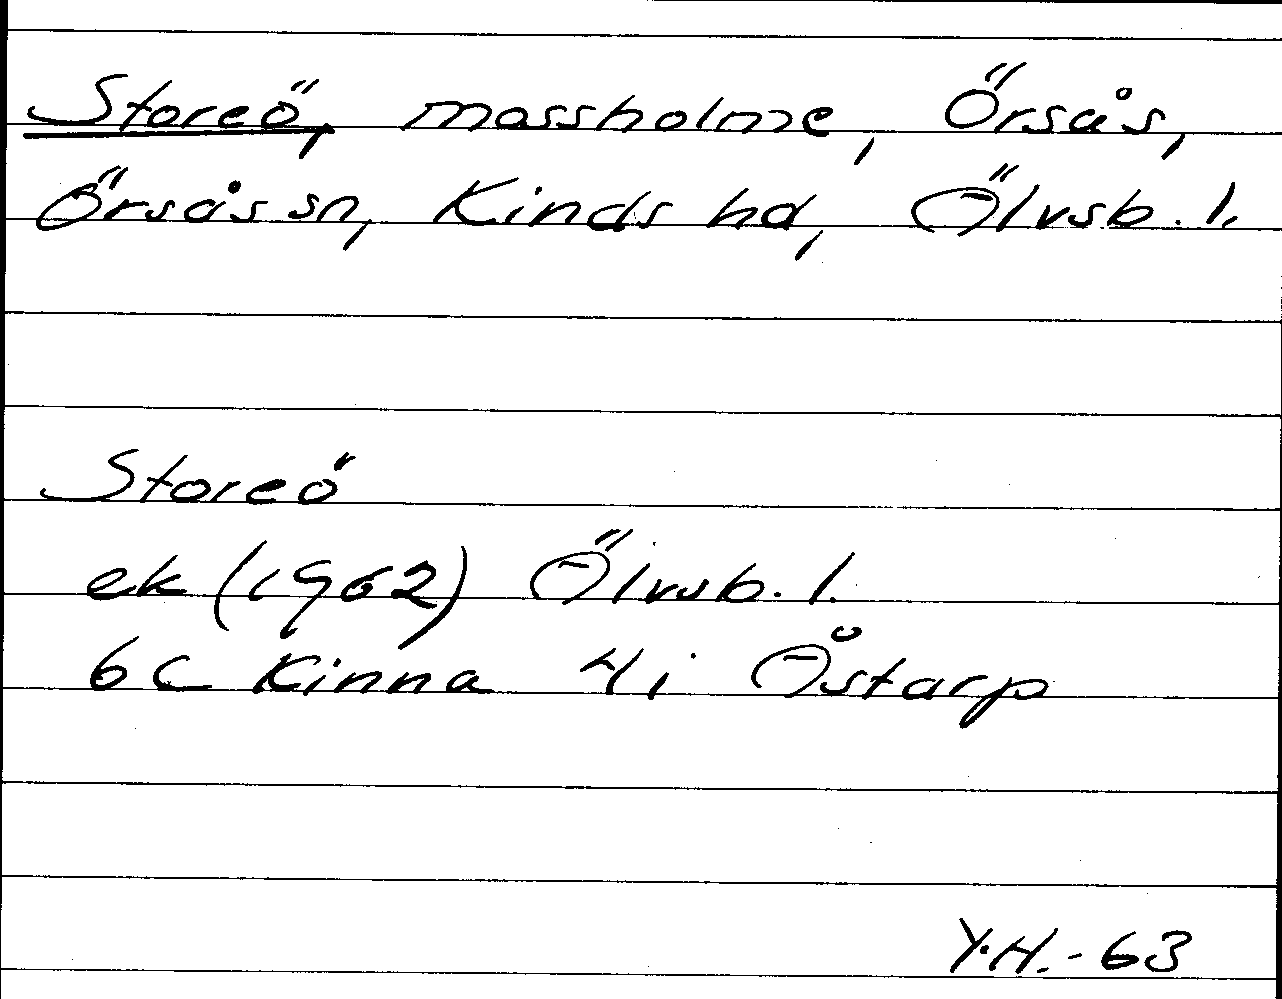 Storeö, mossholme, Örsås,
Örsås sn, Kinds hd, Älvsb. l.
Storeö
ek (1962) Älvsb. l.
6C Kinna 4i Åstarp
Y.H.-63